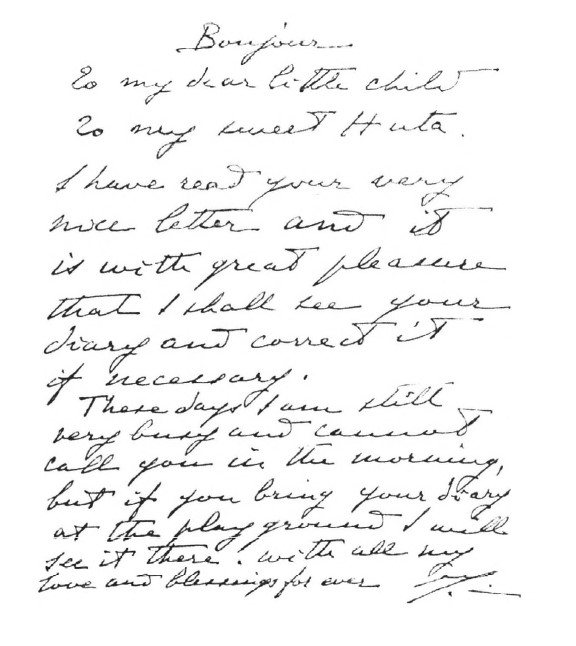 Bonjour
To my dear little child
To my sweet Huta.
I have read your very
nice letter and it
is with great pleasure
that I shall see your
diary and correct it
if necessary.
These days I am still
very busy and cannot
call you in the morning,
but if you bring your diary
at the play ground I will
see it there. with all my
love and blessings for ever